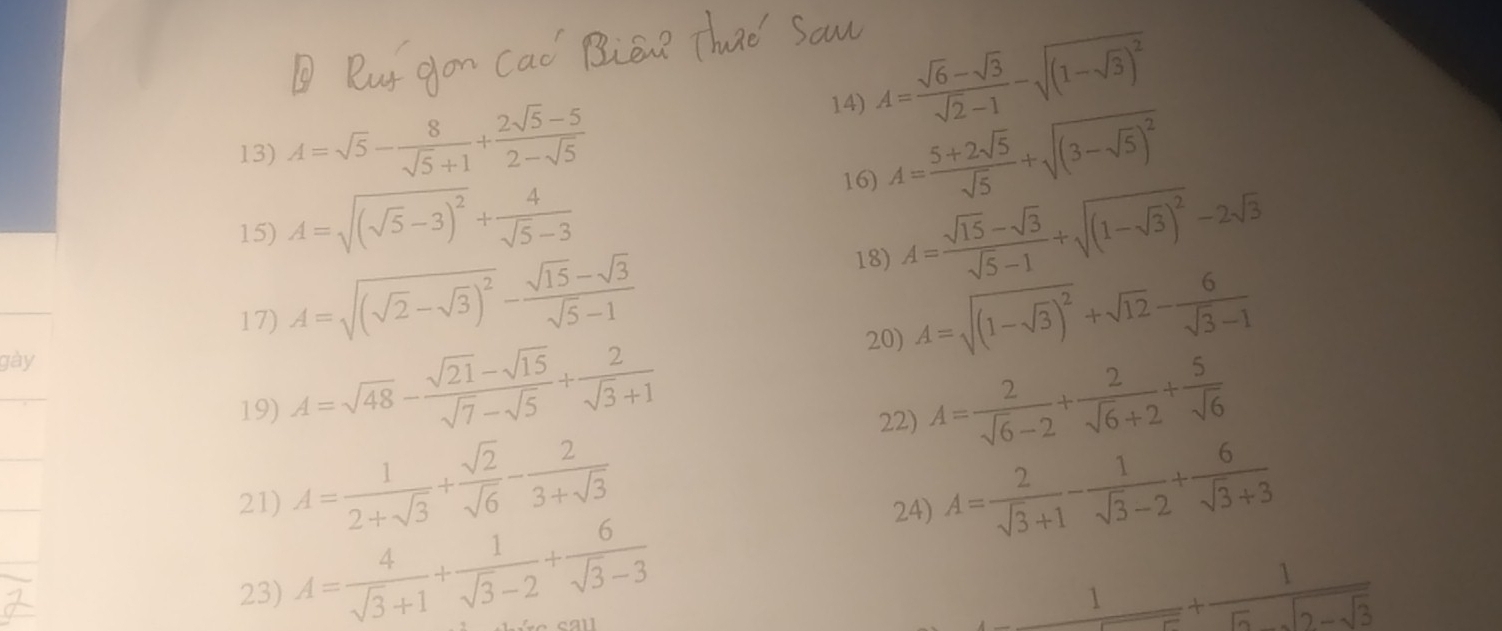 Rút gọn các Biểu thức sau
13) A = √5 − 8/(√5+1) + (2√5−5)/(2−√5)
14) A = (√6−√3)/(√2−1) − √((1−√3)²)
15) A = √((√5−3)²) + 4/(√5−3)
16) A = (5+2√5)/√5 + √((3−√5)²)
17) A = √((√2−√3)²) − (√15−√3)/(√5−1)
18) A = (√15−√3)/(√5−1) + √((1−√3)²) − 2√3
19) A = √48 − (√21−√15)/(√7−√5) + 2/(√3+1)
20) A = √((1−√3)²) + √12 − 6/(√3−1)
21) A = 1/(2+√3) + √2/√6 − 2/(3+√3)
22) A = 2/(√6−2) + 2/(√6+2) + 5/√6
23) A = 4/(√3+1) + 1/(√3−2) + 6/(√3−3)
24) A = 2/(√3+1) − 1/(√3−2) + 6/(√3+3)
thức sau